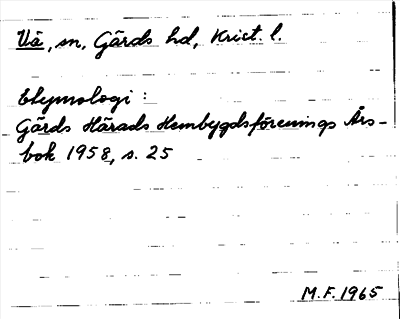 Vä, sn, Gärds hd, Krist. l.
Etymologi :
Gärds Härads Hembygdsförenings Års-
bok 1958, s. 25
M.F. 1965